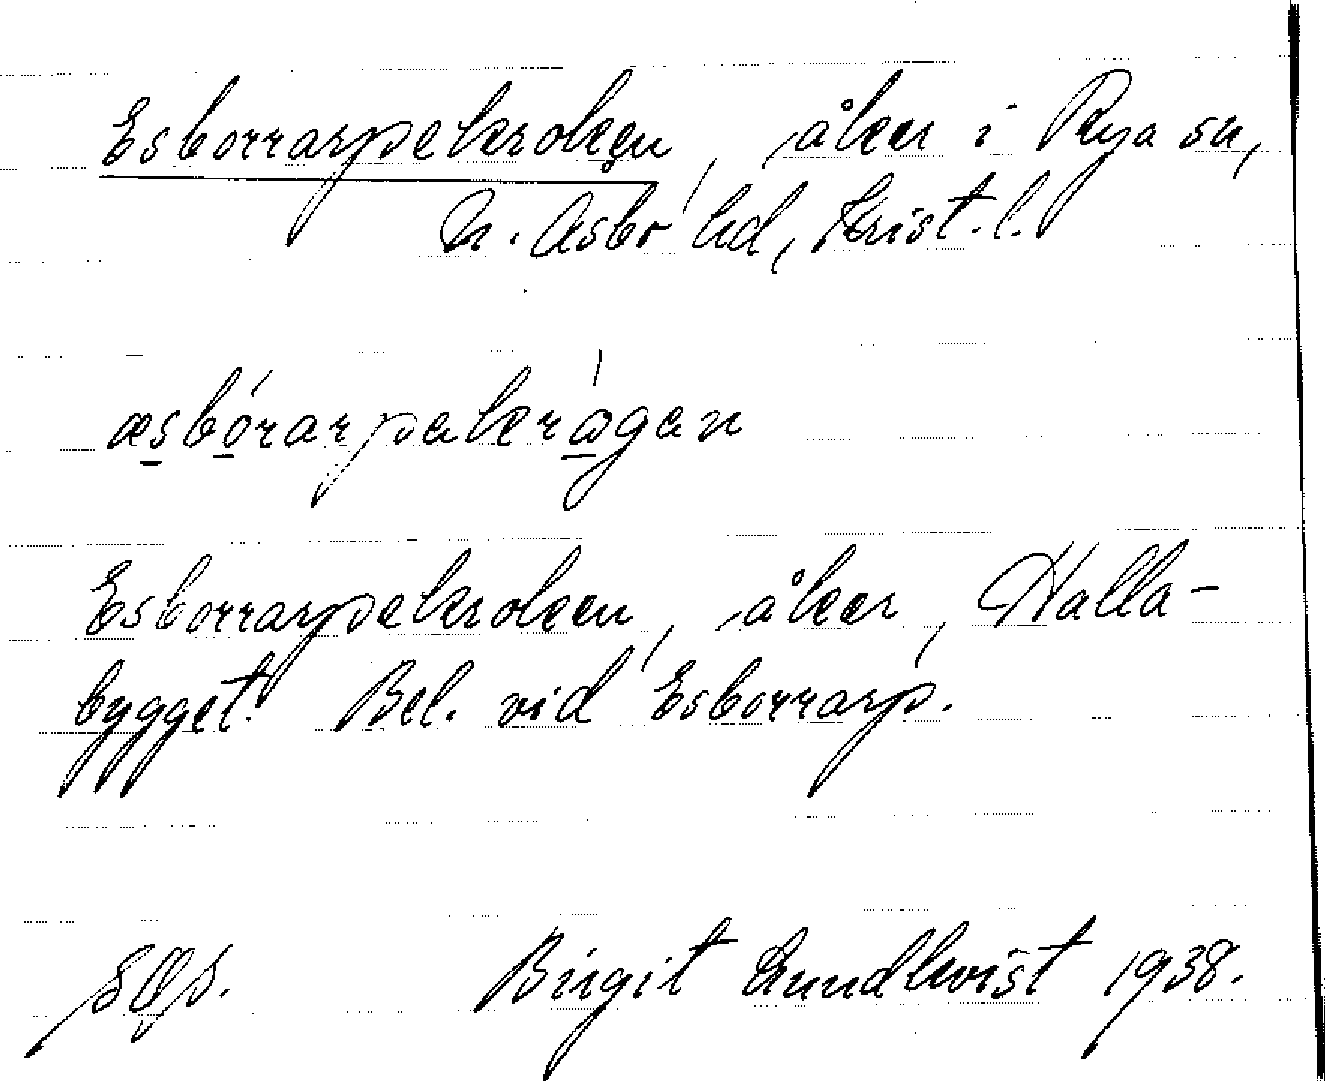 Esborrarpekroken, åker i Rya sn,
N. Åsbo hd, Krist. l.
æsbórarpakrågan
Esborrarpekroken, åker, Halla-
bygget. Bel. vid Esborrarp.
Birgit Lundkvist 1938.